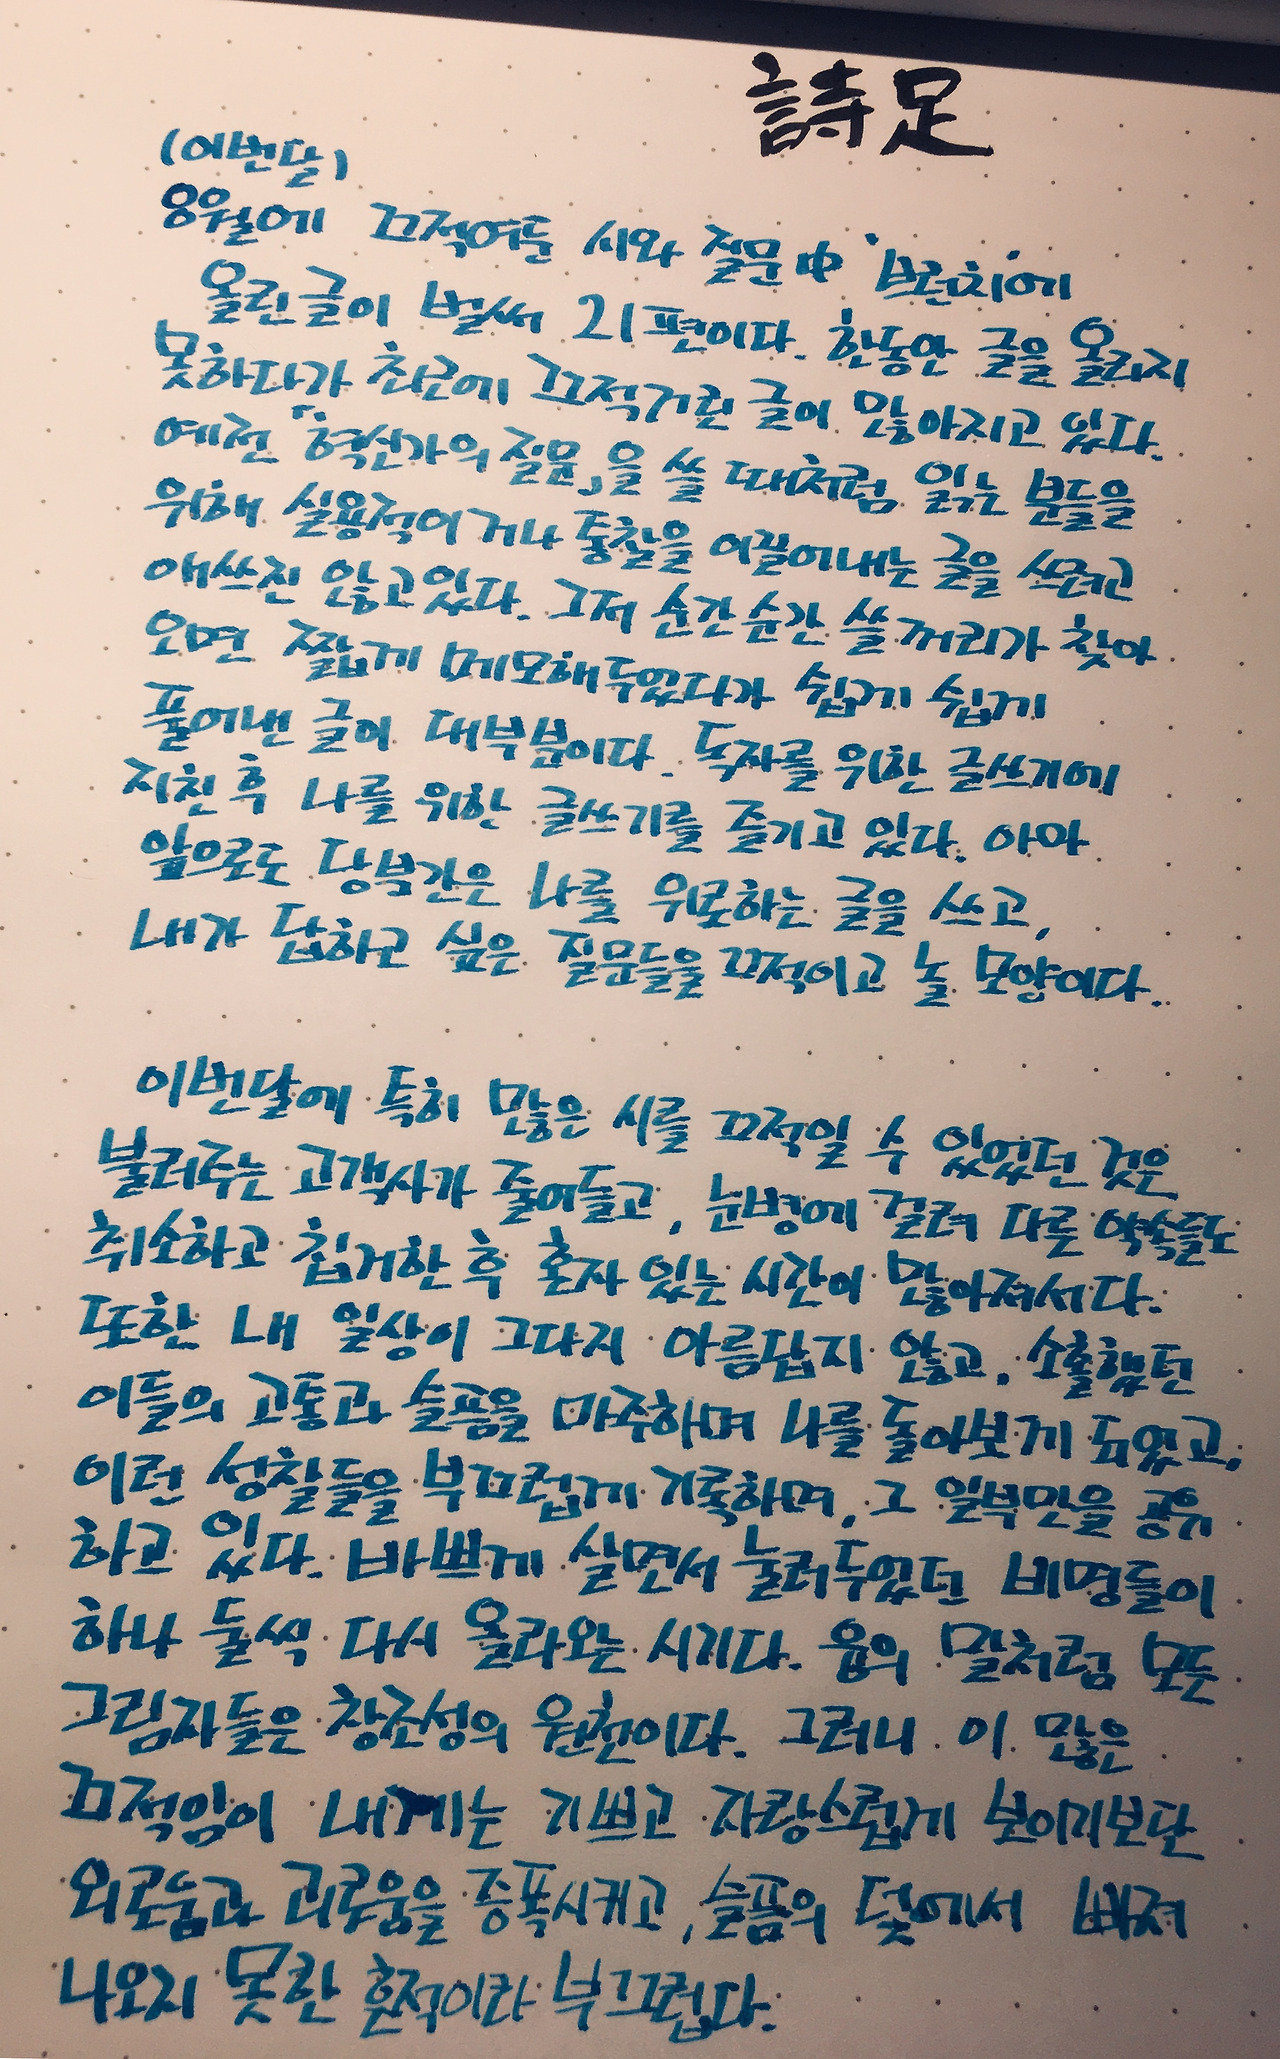 詩足
(이번달)
8월에 끄적여둔 시와 질문中 '브런치'에
올린글이 벌써 21편이다. 한동안 글을 올리지
못하다가 최근에 끄적거린 글이 많아지고 있다.
예전 『혁신가의 질문』을 쓸 때처럼 읽는 분들을
위해 실용적이거나 통찰을 이끌어내는 글을 쓰려고
애쓰진 않고있다. 그저 순간순간 쓸꺼리가 찾아
오면 짧게 메모해두었다가 쉽게 쉽게
풀어낸 글이 대부분이다. 독자를 위한 글쓰기에
지친 후 나를 위한 글쓰기를 즐기고 있다. 아마
앞으로도 당분간은 나를 위로하는 글을 쓰고,
내가 답하고 싶은 질문들을 끄적이고 놀 모양이다.
이번달에 특히 많은 시를 끄적일 수 있었던 것은
불러주는 고객사가 줄어들고, 눈병에 걸려 다른 약속들도
취소하고 칩거한 후 혼자 있는 시간이 많아져서다.
또한 내 일상이 그다지 아름답지 않고, 소홀했던
이들의 고통과 슬픔을 마주하며 나를 돌아보게 되었고,
이런 성찰들을 부끄럽게 기록하며, 그 일부만을 공유
하고 있다. 바쁘게 살면서 눌러두었던 비명들이
하나 둘씩 다시 올라오는 시기다. 융의 말처럼 모든
그림자들은 창조성의 원천이다. 그러니 이 많은
끄적임이 내게는 기쁘고 자랑스럽게 보이기보단
외로움과 괴로움을 증폭시키고, 슬픔의 덫에서 빠져
나오지 못한 흔적이라 부끄럽다.